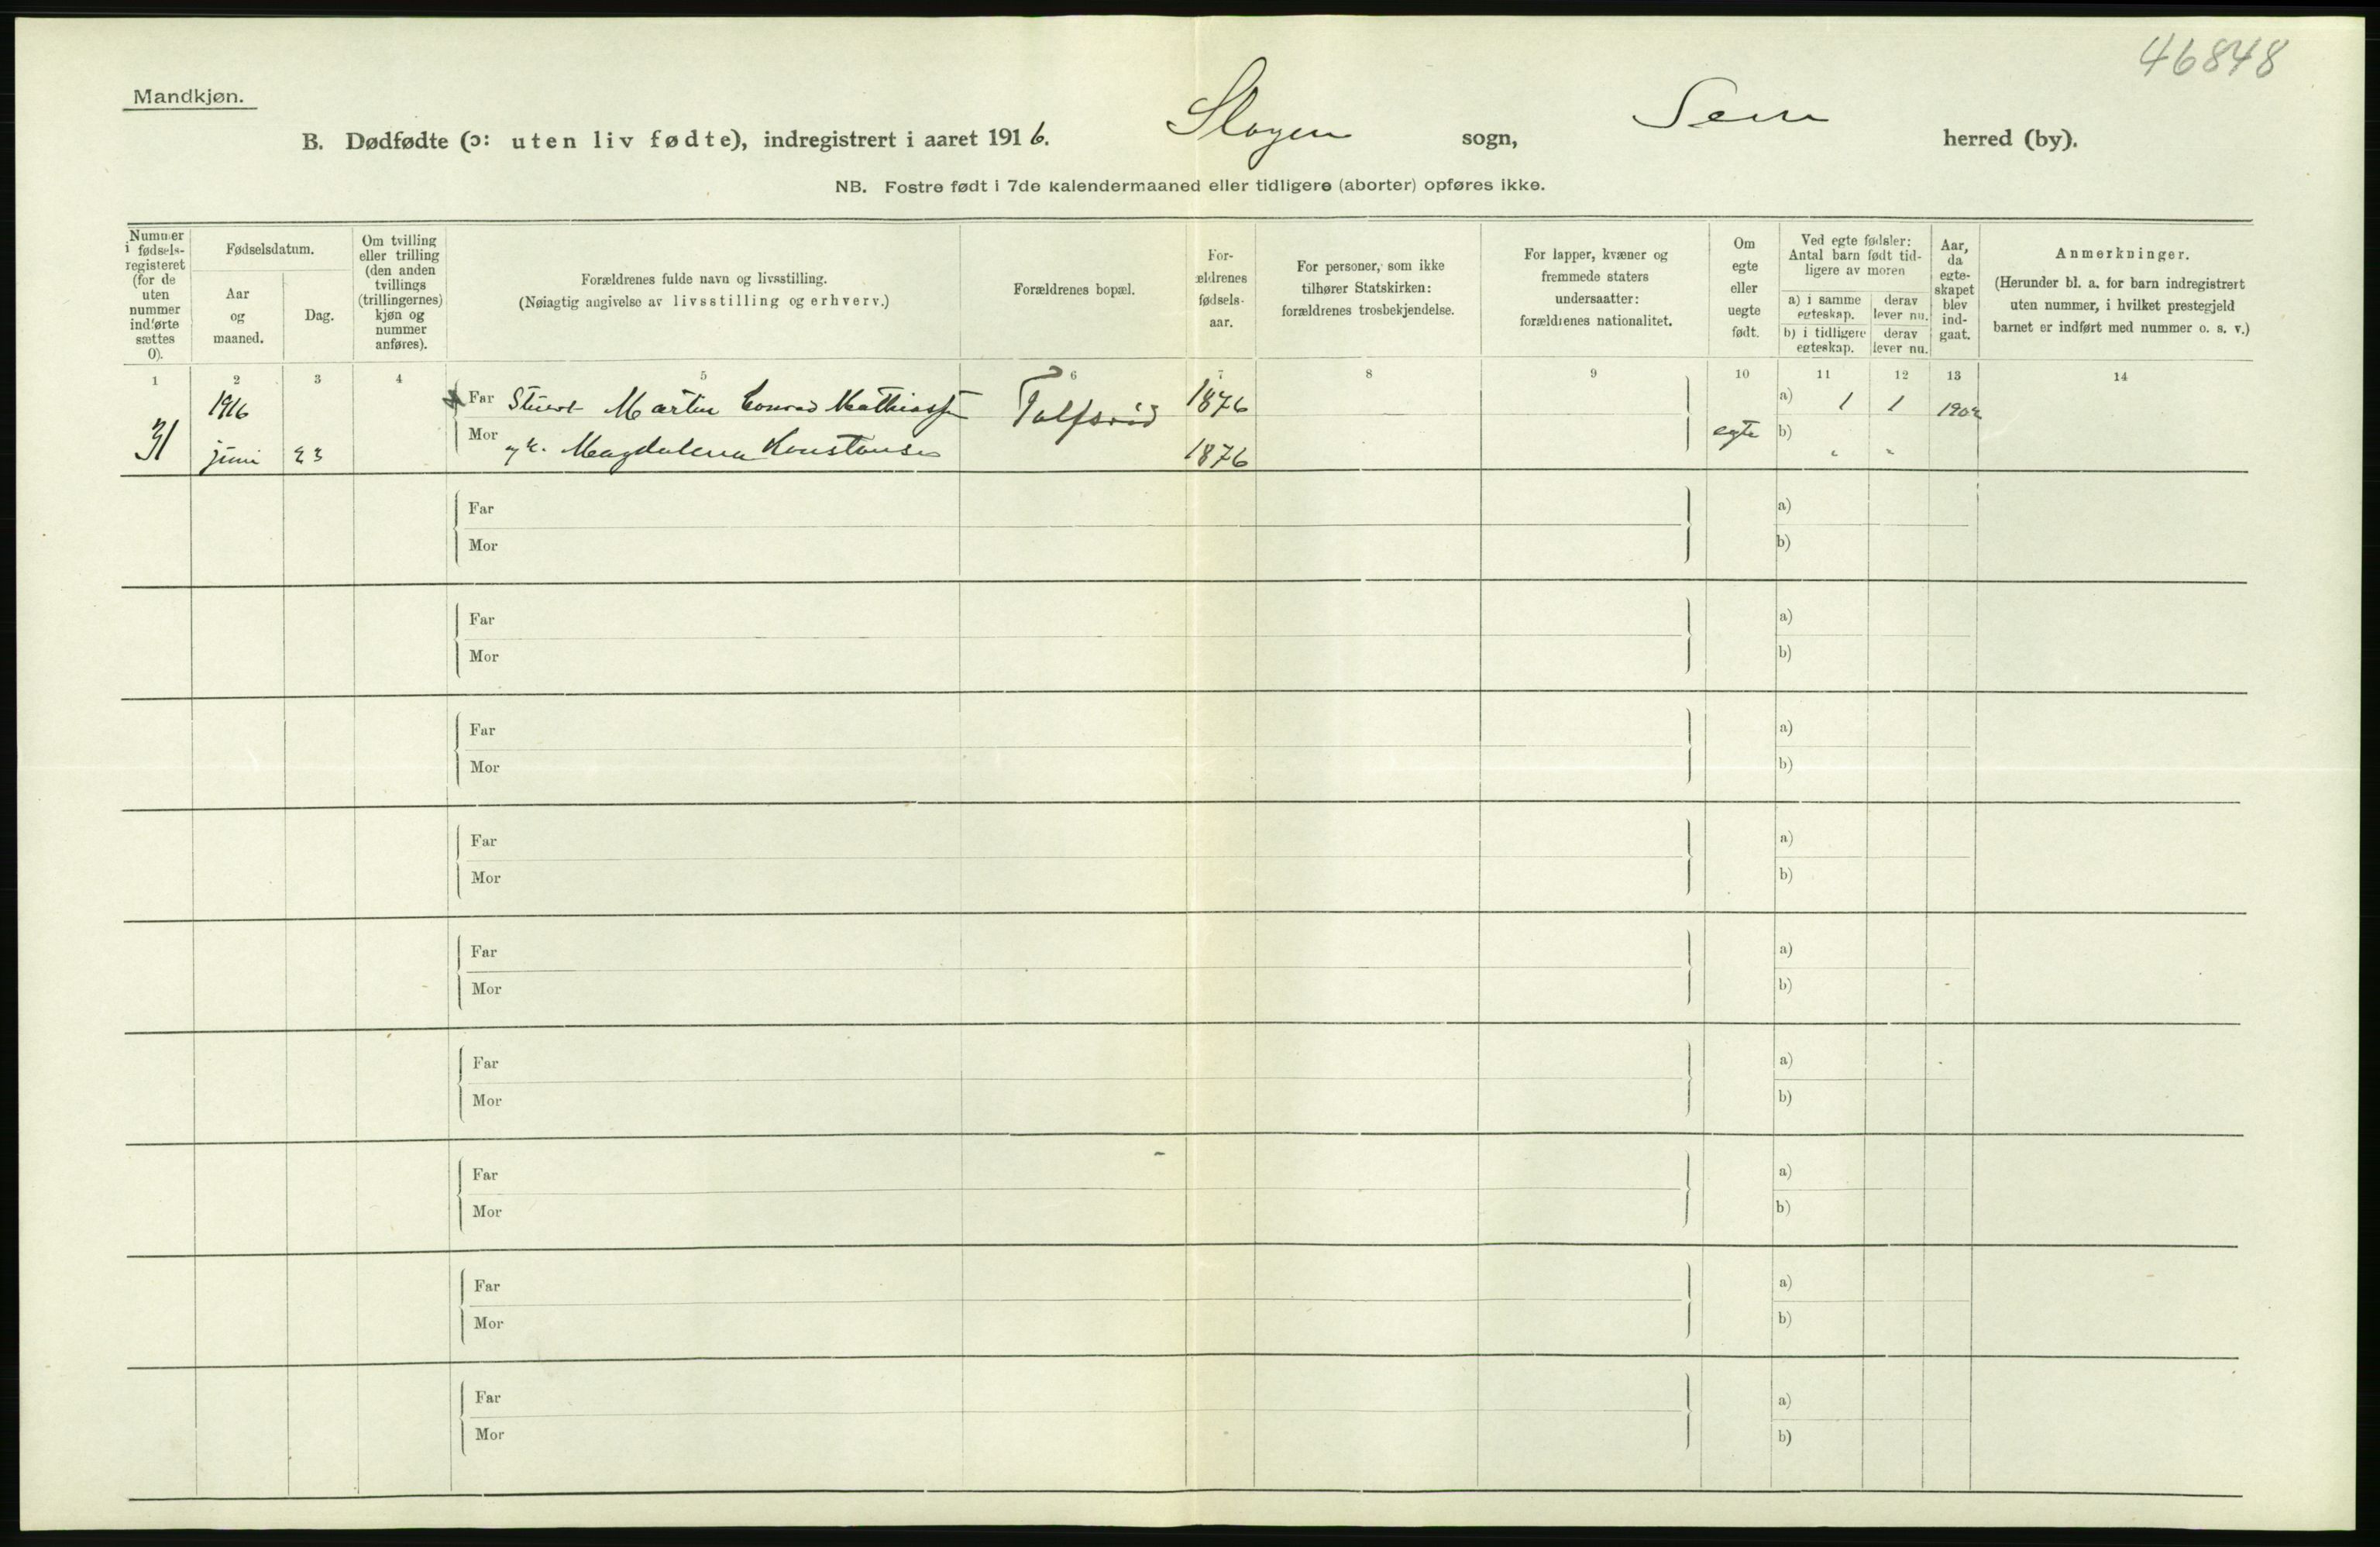 46848
Mandkjøn.
B. Dødfødte (ɔ: uten liv fødte), indregistrert i aaret 1916. Slagen sogn, Sem herred (by).
NB. Fostre født i 7de kalendermaaned eller tidligere (aborter) opføres ikke.
Nummer
i fødsels-
registeret
(for de
uten
nummer
indførte
sættes
0).
Fødselsdatum.
Aar
og
maaned.
Dag.
Om tvilling
eller trilling
(den anden
tvillings
(trillingernes)
kjøn og
nummer
anføres).
Forældrenes fulde navn og livsstilling.
(Nøiagtig angivelse av livsstilling og erhverv.)
Forældrenes bopæl.
For-
ældrenes
fødsels-
aar.
For personer, som ikke
tilhører Statskirken:
forældrenes trosbekjendelse.
For lapper, kvæner og
fremmede staters
undersaatter:
forældrenes nationalitet.
Om
egte
eller
uegte
født.
Ved egte fødsler:
Antal barn født tid-
ligere av moren
a) i samme
egteskap.
derav
lever nu.
b) i tidligere
egteskap.
derav
lever nu.
Aar,
da
egte-
skapet
blev
ind-
gaat.
Anmerkninger.
(Herunder bl. a. for barn indregistrert
uten nummer, i hvilket prestegjeld
barnet er indført med nummer o. s. v.)
1 2 3 4 5 6 7 8 9 10 11 12 13 14
1916 Far Stuert Martin Conrad Mathiassen 1876 a) 1 1 1902
31 juni 23 Mor Magdalena Konstanse 1876 egte b) " "
Far a)
Mor b)
Far a)
Mor b)
Far a)
Mor b)
Far a)
Mor b)
Far a)
Mor b)
Far a)
Mor b)
Far a)
Mor b)
Far a)
Mor b)
Far a)
Mor b)